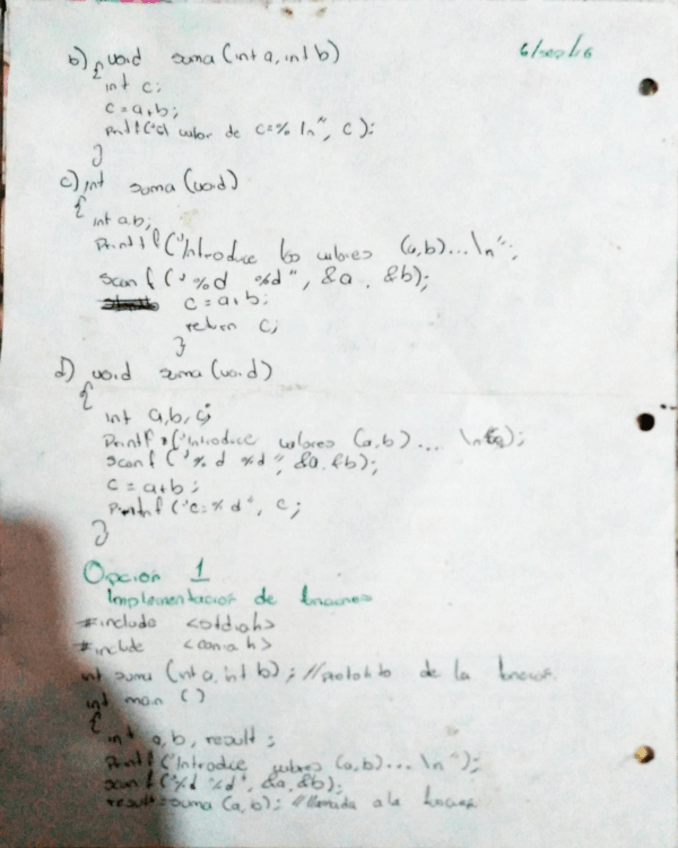 6/sep/16
b) void suma (int a, int b)
{
int c;
c = a+b;
printf("el valor de c=% \n", c);
}
c) int suma (void)
{
int a,b;
Printf ("Introduce los valores (a,b)...\n";
scanf ("%d %d", &a, &b);
c = a+b;
return c;
}
d) void suma (void)
{
int a,b,c;
Printf ("Introduce valores (a,b)... \n");
scanf ("%d %d", &a, &b);
c = a+b;
Printf ("c=%d", c;
}
Opción 1
Implementacion de funciones
#include <stdio.h>
#include <conio.h>
int suma (int a, int b); //prototito de la funcion
int main ()
{
int a, b, result;
Printf ("Introduce valores (a,b)...\n");
scanf ("%d %d", &a, &b);
result=suma (a,b); //llamada a la funcion